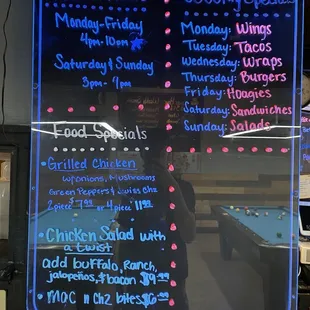 Monday-Friday
4pm-10pm
Saturday & Sunday
3pm-7pm
Food Specials
• Grilled Chicken
w/onions, mushrooms
Green Peppers & Swiss Chz
2 piece $7.99 or 4 piece 11.99
• Chicken Salad with
a twist
add buffalo, Ranch,
jalapeños, & bacon $9.99
• Mac n Chz bites $6
Specials
Monday: Wings
Tuesday: Tacos
Wednesday: Wraps
Thursday: Burgers
Friday: Hoagies
Saturday: Sandwiches
Sunday: Salads